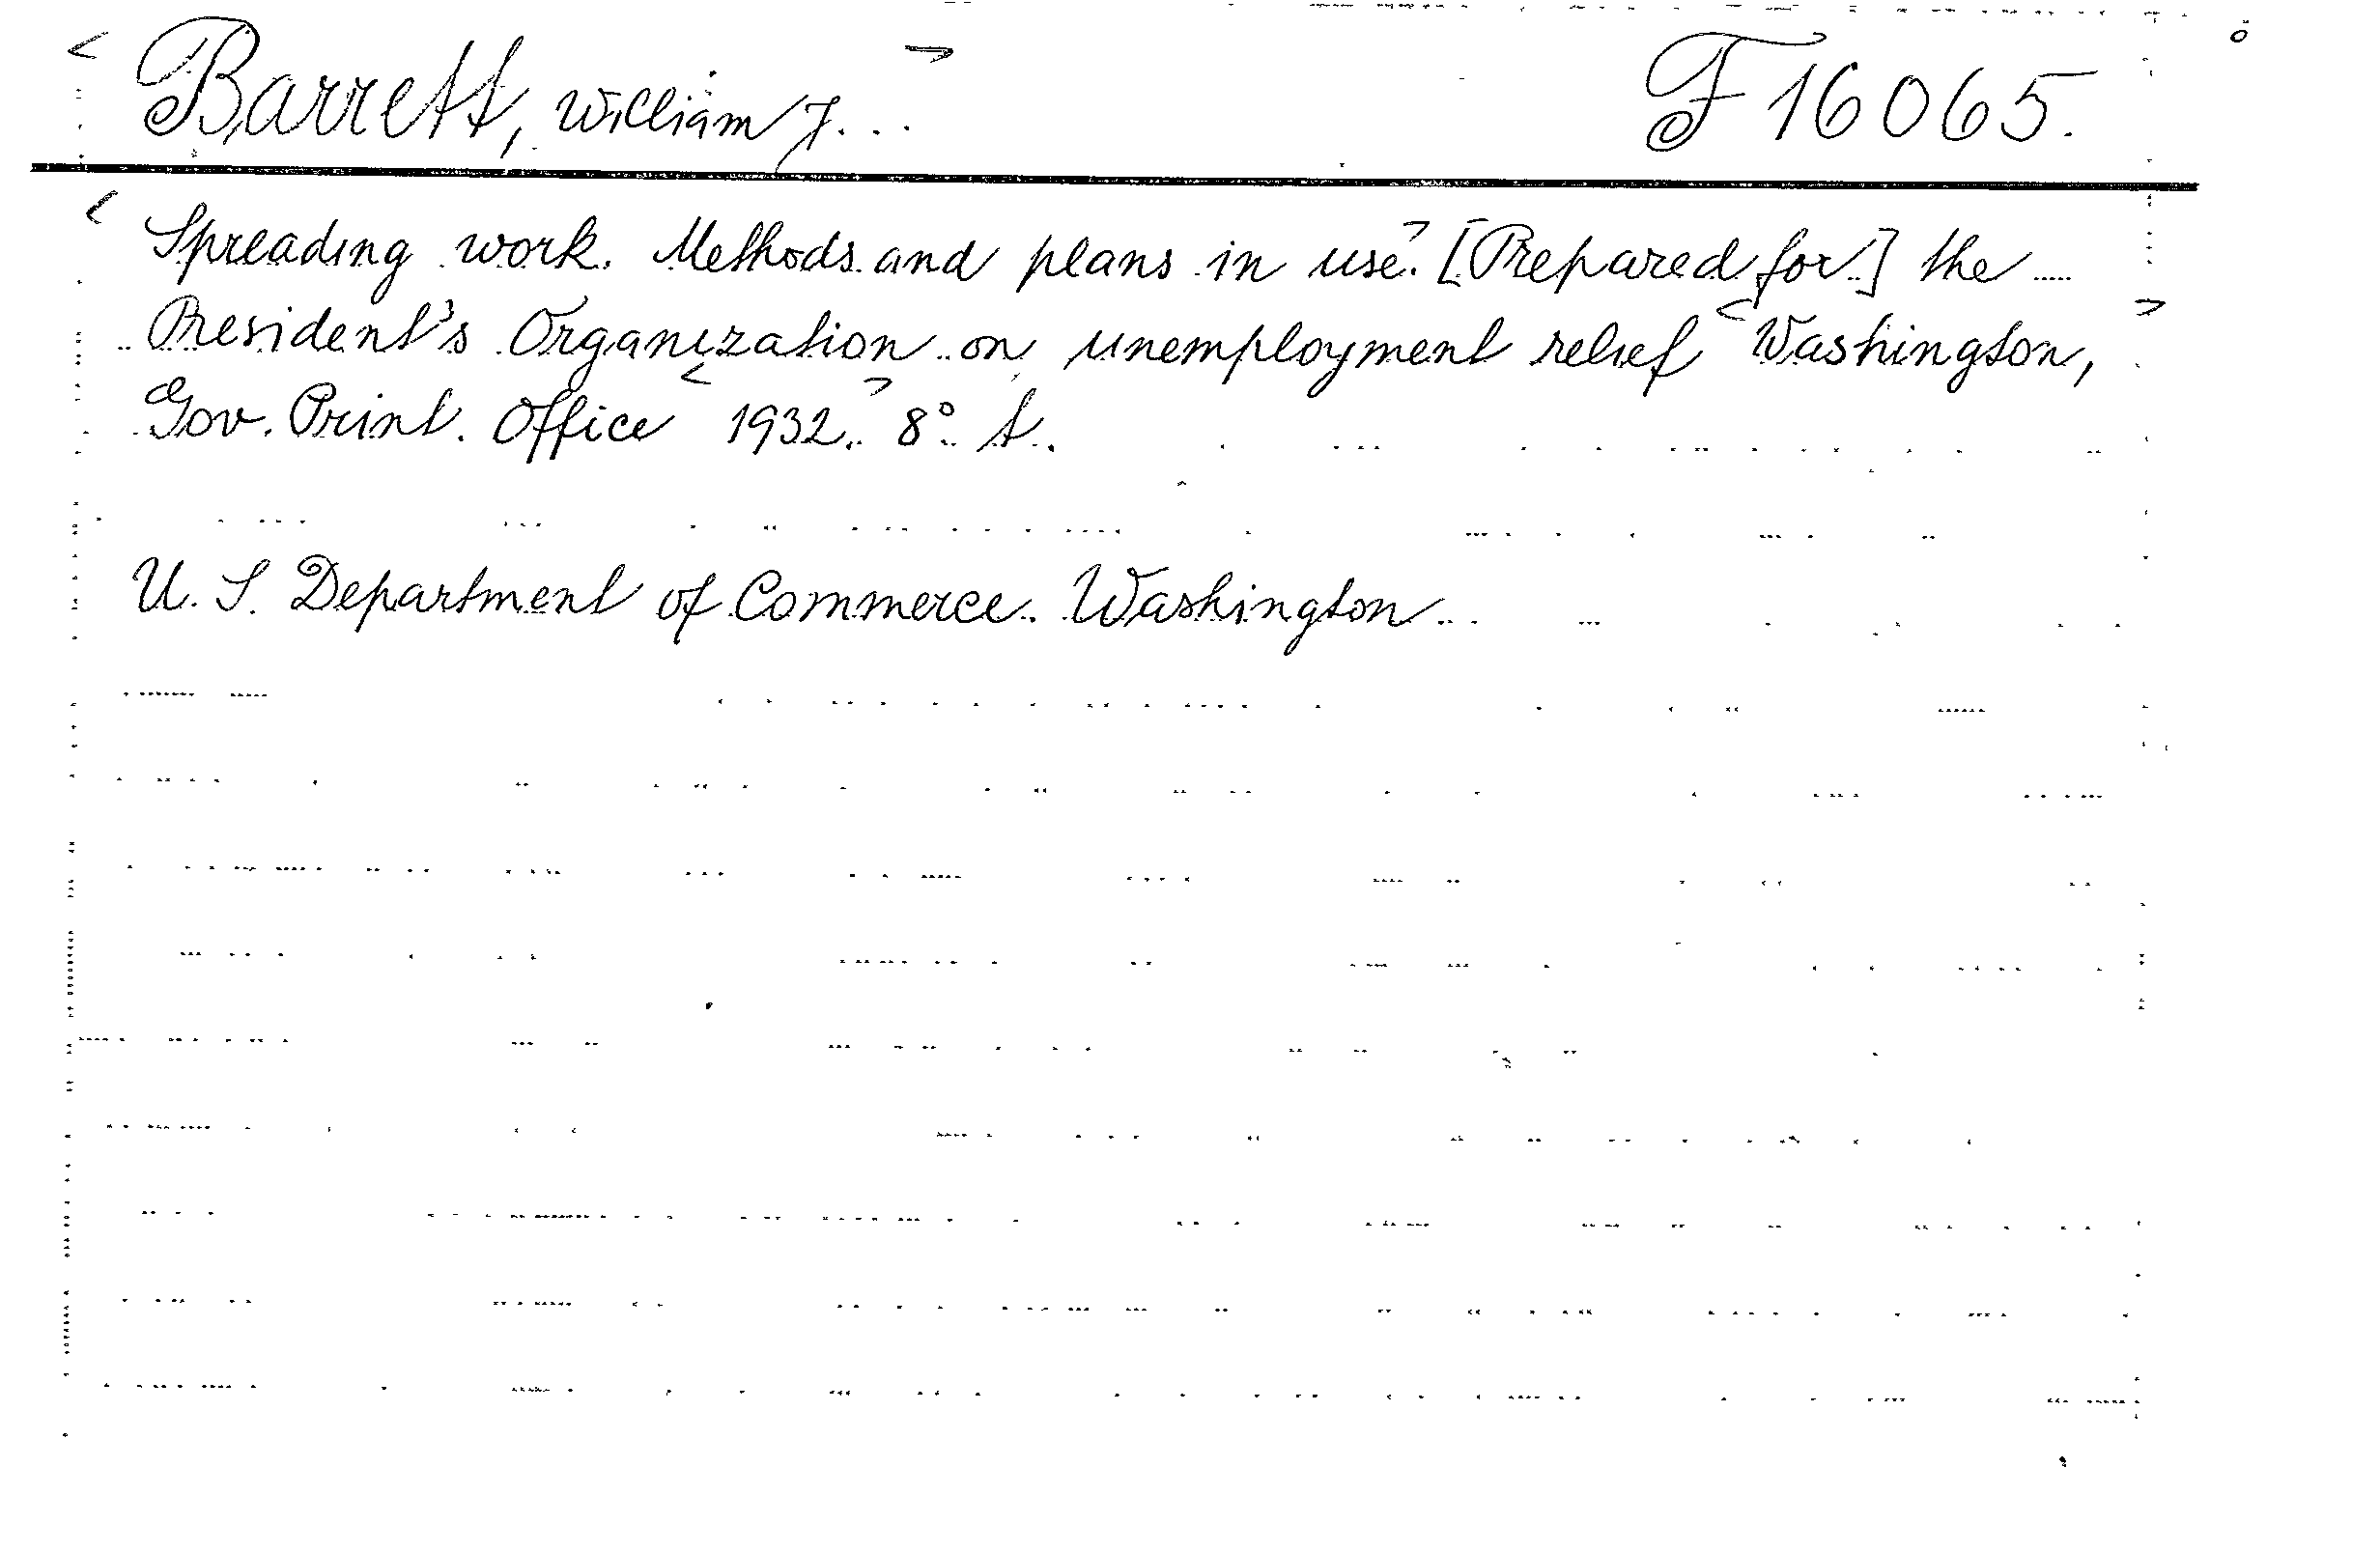 < Barrett, William J. > F 16065.
< Spreading work. Methods and plans in use.> [Prepared for] the
President's Organization on unemployment relief <Washington,>
Gov. Print. Office <1932.> 8° t.
U. S. Department of Commerce. Washington.